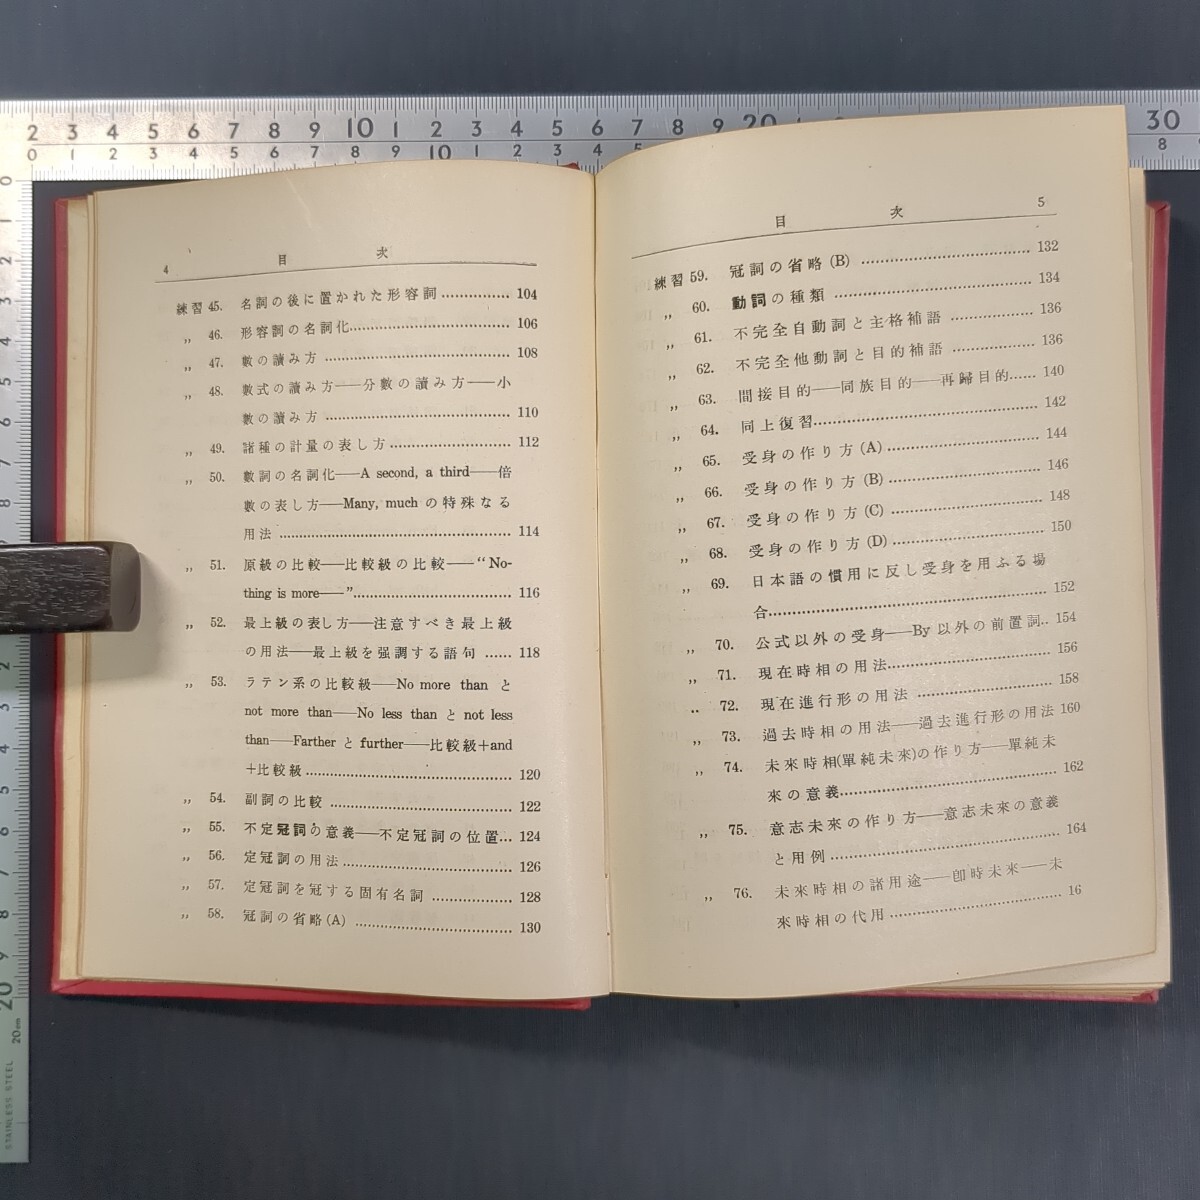 2 3 4 5 6 7 8 9 10 1 2 3 4 5 6 7 8 9 20 30
0 1 2 3 4 5 6 7 8 9 10 1 2 3 4 8
4 目次
練習 45. 名詞の後に置かれた形容詞 ............... 104
〃 46. 形容詞の名詞化 ............... 106
〃 47. 數の讀み方 ............... 108
〃 48. 數式の讀み方——分數の讀み方——小
數の讀み方 ............... 110
〃 49. 諸種の計量の表し方 ............... 112
〃 50. 數詞の名詞化——A second, a third——倍
數の表し方——Many, much の特殊なる
用法 ............... 114
〃 51. 原級の比較——比較級の比較——“No-
thing is more——” ............... 116
〃 52. 最上級の表し方——注意すべき最上級
の用法——最上級を强調する語句 ...... 118
〃 53. ラテン系の比較級——No more than と
not more than——No less than と not less
than——Farther と further——比較級+and
+比較級 ............... 120
〃 54. 副詞の比較 ............... 122
〃 55. 不定冠詞の意義——不定冠詞の位置... 124
〃 56. 定冠詞の用法 ............... 126
〃 57. 定冠詞を冠する固有名詞 ............... 128
〃 58. 冠詞の省略 (A) ............... 130
目次 5
練習 59. 冠詞の省略 (B) ............... 132
〃 60. 動詞の種類 ............... 134
〃 61. 不完全自動詞と主格補語 ............... 136
〃 62. 不完全他動詞と目的補語 ............... 136
〃 63. 間接目的——同族目的——再歸目的...... 140
〃 64. 同上復習 ............... 142
〃 65. 受身の作り方 (A) ............... 144
〃 66. 受身の作り方 (B) ............... 146
〃 67. 受身の作り方 (C) ............... 148
〃 68. 受身の作り方 (D) ............... 150
〃 69. 日本語の慣用に反し受身を用ふる場
合 ............... 152
〃 70. 公式以外の受身——By 以外の前置詞.. 154
〃 71. 現在時相の用法 ............... 156
〃 72. 現在進行形の用法 ............... 158
〃 73. 過去時相の用法——過去進行形の用法 160
〃 74. 未來時相(單純未來)の作り方——單純未
來の意義 ............... 162
〃 75. 意志未來の作り方——意志未來の意義
と用例 ............... 164
〃 76. 未來時相の諸用途——卽時未來——未
來時相の代用 ............... 16
20 cm
STAINLESS STEEL